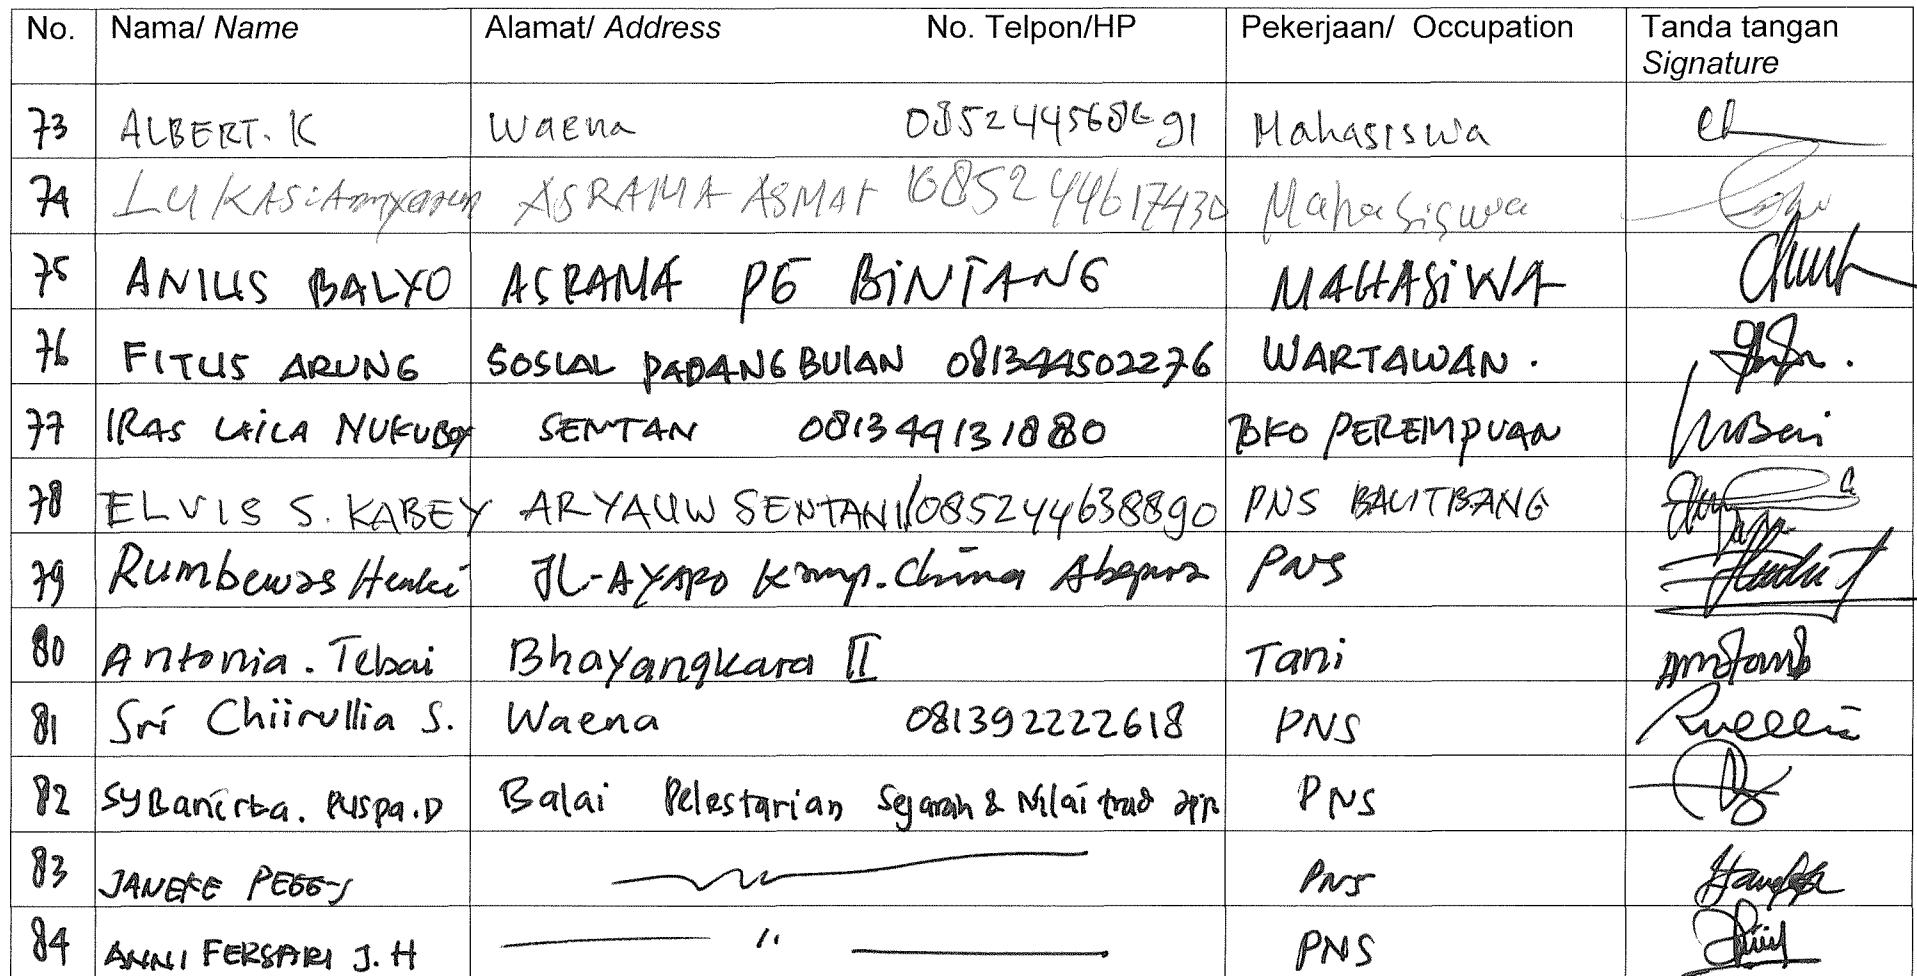 No. Nama/ Name Alamat/ Address No. Telpon/HP Pekerjaan/ Occupation Tanda tangan
Signature
73 ALBERT. K Waena Mahasiswa
74 ASRAMA ASMAT 085244617430 Mahasiswa
75 ANIUS BALYO ASRAMA PE BINTANG MAHASiWA
76 FITUS ARUNG SOSIAL PADANG BULAN 081344502276 WARTAWAN.
77 IRAS LAILA NUKUBOY SENTAN 081344131880 BKO PEREMPUAN
78 ELVIS S. KABEY ARYAUW SENTANI/085244638890 PNS BALITBANG
79 Rumbewas Henki JL-AYAPO Kamp. China Abepura PNS
80 Antonia. Tebai Bhayangkara II Tani
81 Sri Chiirullia S. Waena 081392222618 PNS
82 Puspa.D Balai Pelestarian Sejarah & Nilai trad PNS
83 JANEKE PNS
84 ANNI FERSARI J.H 〃 PNS